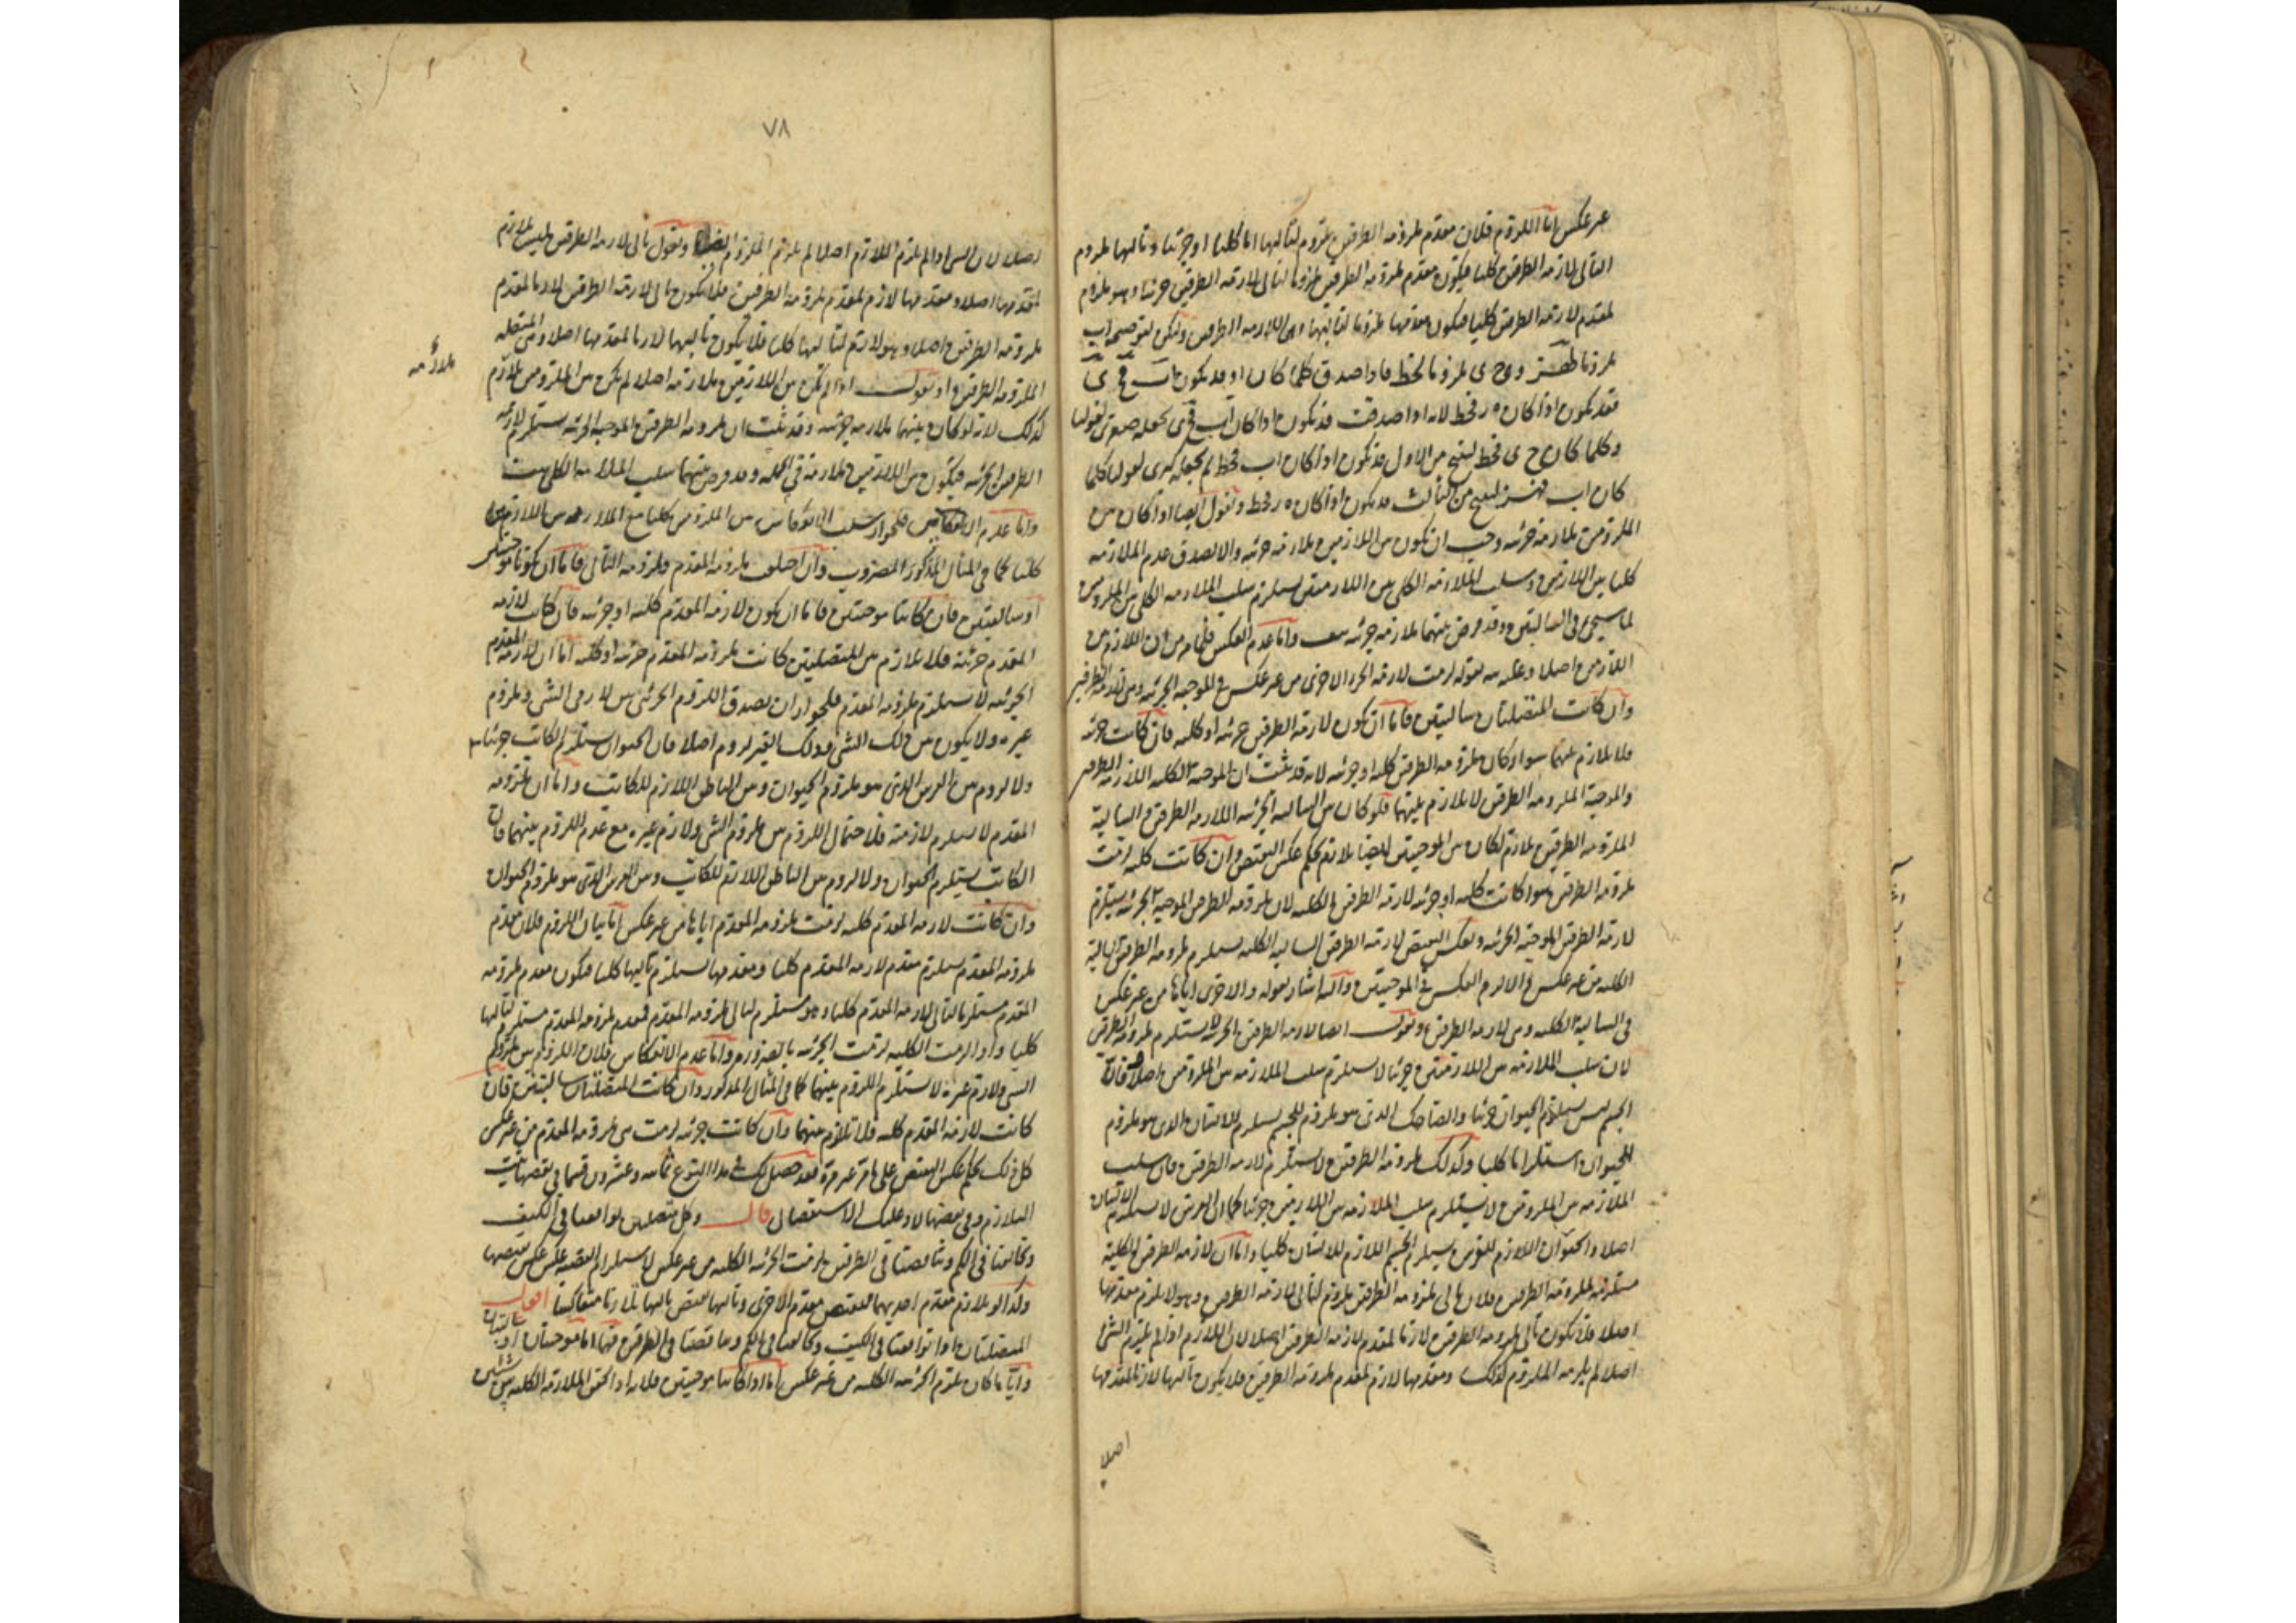 عير عكس اما اللزوم فلان مقدم ملزومة الطرفين ملزوم لتاليها اما كليا او جزئيا وتاليها ملزوم
التالى لازمة الطرفين كليا فيكون مقدم ملزومة الطرفين ملزوما لتالى لازمة الطرفين جزئيا وهو ملزوم
لمقدم لازمة الطرفين كليا فيكون مقدمها ملزوما لتاليها وهى اللازمة الطرفين وليكن لتوضيحه اب
ملزوما وج ى ملزوما لحط فاذا صدق كلما كان او قد يكون اب فج ى
فقد يكون اذا كان ه ر فحط لانه اذا صدقت قد يكون اذا كان اب فج ى نجعله صغرى لقولنا
وكلما كان ج ى فحط لينتج من الاول قد يكون اذا كان اب فحط ثم نجعله كبرى لقولنا كلما
كان اب لينتج من الثالث قد يكون اذا كان ه ر فحط ونقول ايضا اذا كان بين
الملزومين ملازمة جزئية وجب ان يكون بين اللازمين ملازمة جزئية والا لصدق عدم الملازمة
كليا بين اللازمين وسلب الملازمة الكلى بين اللازمين يستلزم سلب الملازمة الكلى بين الملزومين
لما سيجئ فى السالبتين وقد فرض بينهما ملازمة جزئية هف واما عدم العكس فلما مر من ان اللازم بين
اللازمين اصلا وعليه نبه بقوله لزمت لازمة الجزء الاخرى من غير عكس فى الموجبة الجزئية ومن لازمة الطرفين
وان كانت المتصلتان سالبتين فاما ان يكون لازمة الطرفين جزئية او كلية فان كانت جزئية
فلا تلازم بينهما سواء كان ملزومة الطرفين كلية او جزئية لانه قد ثبت ان الموجبة الكلية اللازمة الطرفين
والموجبة الملزومة الطرفين لا تلازم بينهما فلو كان بين السالبة الجزئية اللازمة الطرفين والسالبة
الملزومة الطرفين تلازم لكان بين الموجبتين ايضا تلازم بحكم عكس النقيض وان كانت كلية لزمت
ملزومة الطرفين سواء كانت كلية او جزئية لازمة الطرفين الكلية لان ملزومة الطرفين الموجبة الجزئية يستلزم
لازمة الطرفين الموجبة الجزئية وبعكس النقيض لازمة الطرفين السالبة الكلية يستلزم ملزومة الطرفين السالبة
الكلية من غير عكس والا لزم العكس فى الموجبتين واليه اشار بقوله والاخرى اياها من غير عكس
فى السالبة الكلية ومن لازمة الطرفين ونقول ايضا لازمة الطرفين الجزئية لا يستلزم ملزومة الطرفين
لان سلب الملازمة بين اللازمين جزئيا لا يستلزم سلب الملازمة بين الملزومين اصلا فان
الجسم ليس يستلزم الحيوان جزئيا والضاحك الذى هو ملزوم للجسم يستلزم للانسان الذى هو ملزوم
للحيوان استلزاما كليا وكذلك ملزومة الطرفين لا يستلزم لازمة الطرفين فان سلب
الملازمة بين الملزومين لا يستلزم سلب الملازمة بين اللازمين جزئيا كما ان الفرس لا يستلزم الانسان
اصلا والحيوان اللازم للفرس يستلزم الجسم اللازم للانسان كليا واما ان لازمة الطرفين الكلية
مستلزمة لملزومة الطرفين فلان تالى ملزومة الطرفين ملزوم لتالى لازمة الطرفين وهو لا يلزم مقدمها
اصلا فلا يكون تالى ملزومة الطرفين لازما لمقدم لازمة الطرفين اصلا لان اللازم اذا لم يلزم الشئ
اصلا لم يلزمه الملزوم كذلك ومقدمها لازم لمقدم ملزومة الطرفين فلا يكون تاليها لازما لمقدمها
اصلا
٧٨
اصلا لان الشئ اذا لم يلزم اللازم اصلا لم يلزم الملزوم ايضا ونقول تالى لازمة الطرفين ليس يلازم
لمقدمها اصلا ومقدمها لازم لمقدم ملزومة الطرفين فلا يكون تالى لازمة الطرفين لازما لمقدم
ملزومة الطرفين اصلا وهو لازم لتاليها كليا فلا يكون تاليها لازما لمقدمها اصلا وهى المتصلة
الملزومة الطرفين او نقول اذا لم يكن بين اللازمين ملازمة اصلا لم يكن بين الملزومين تلازم
ملازمة
كذلك لانه لو كان بينهما ملازمة جزئية وقد ثبت ان ملزومة الطرفين الموجبة الجزئية تستلزم لازمة
الطرفين الجزئية فيكون بين اللازمين ملازمة فى الجملة وقد فرض بينهما سلب الملازمة الكلى هف
واما عدم الانعكاس فلجواز سلب اللزوم بين الملزومين كليا مع الملازمة بين اللازمين
كليا كما فى المثال المذكور المضروب وان اختلف ملزومة المقدم وملزومة التالى فاما ان يكونا موجبتين
او سالبتين فان كانتا موجبتين فاما ان يكون لازمة المقدم كلية او جزئية فان كانت لازمة
المقدم جزئية فلا تلازم بين المتصلتين كانت ملزومة المقدم جزئية او كلية اما ان لازمة المقدم
الجزئية لا يستلزم ملزومة المقدم فلجواز ان يصدق اللزوم الجزئى بين لازمى الشئ وملزوم
غيره ولا يكون بين ذلك الشئ وذلك الغير لزوم اصلا فان الحيوان يستلزم الكاتب جزئيا
ولا لزوم بين الفرس الذى هو ملزوم الحيوان وبين الناطق اللازم للكاتب واما ان ملزومة
المقدم لا يستلزم لازمته فلاحتمال اللزوم بين ملزوم الشئ ولازم غيره مع عدم اللزوم بينهما فان
الكاتب يستلزم الحيوان ولا لزوم بين الناطق اللازم للكاتب وبين الفرس الذى هو ملزوم الحيوان
وان كانت لازمة المقدم كلية لزمت ملزومة المقدم اياها من غير عكس اما بيان اللزوم فلان مقدم
ملزومة المقدم يستلزم مقدم لازمة المقدم كليا ومقدمها يستلزم تاليها كليا فيكون مقدم ملزومة
المقدم مستلزما لتالى لازمة المقدم كليا وهو مستلزم لتالى ملزومة المقدم فمقدم ملزومة المقدم مستلزم لتاليها
كليا واذا لزمت الكلية لزمت الجزئية بالضرورة واما عدم الانعكاس فلان اللزوم بين ملزوم
الشئ ولازم غيره لا يستلزم اللزوم بينهما كما فى المثال المذكور وان كانت المتصلتان سالبتين فان
كانت لازمة المقدم كلية فلا تلازم بينهما وان كانت جزئية لزمت من ملزومة المقدم من غير عكس
كل ذلك بحكم عكس النقيض على ما مر غير مرة فقد حصل لك فى هذا النوع ثمانية وعشرون قسما فى بعضها يثبت
التلازم وفى بعضها لا وعليك الاستقصاء قال وكل متصلتين توافقتا فى الكيف
وتخالفتا فى الكم وتناقضتا فى الطرفين لزمت الجزئية الكلية من غير عكس لاستلزام القضية عكس عكس نقيضها
وكذا لو تلازم مقدم احديهما لنقيض مقدم الاخرى وتاليها نقيض تاليها تلازما متعاكسا اقول
المتصلتان اذا توافقتا فى الكيف وتخالفتا فى الكم وتناقضتا فى الطرفين فهما اما موجبتان او سالبتان
وايا ما كان يلزم الجزئية الكلية من غير عكس اما اذا كانتا موجبتين فلانه اذا تحقق الملازمة الكلية بين شيئين